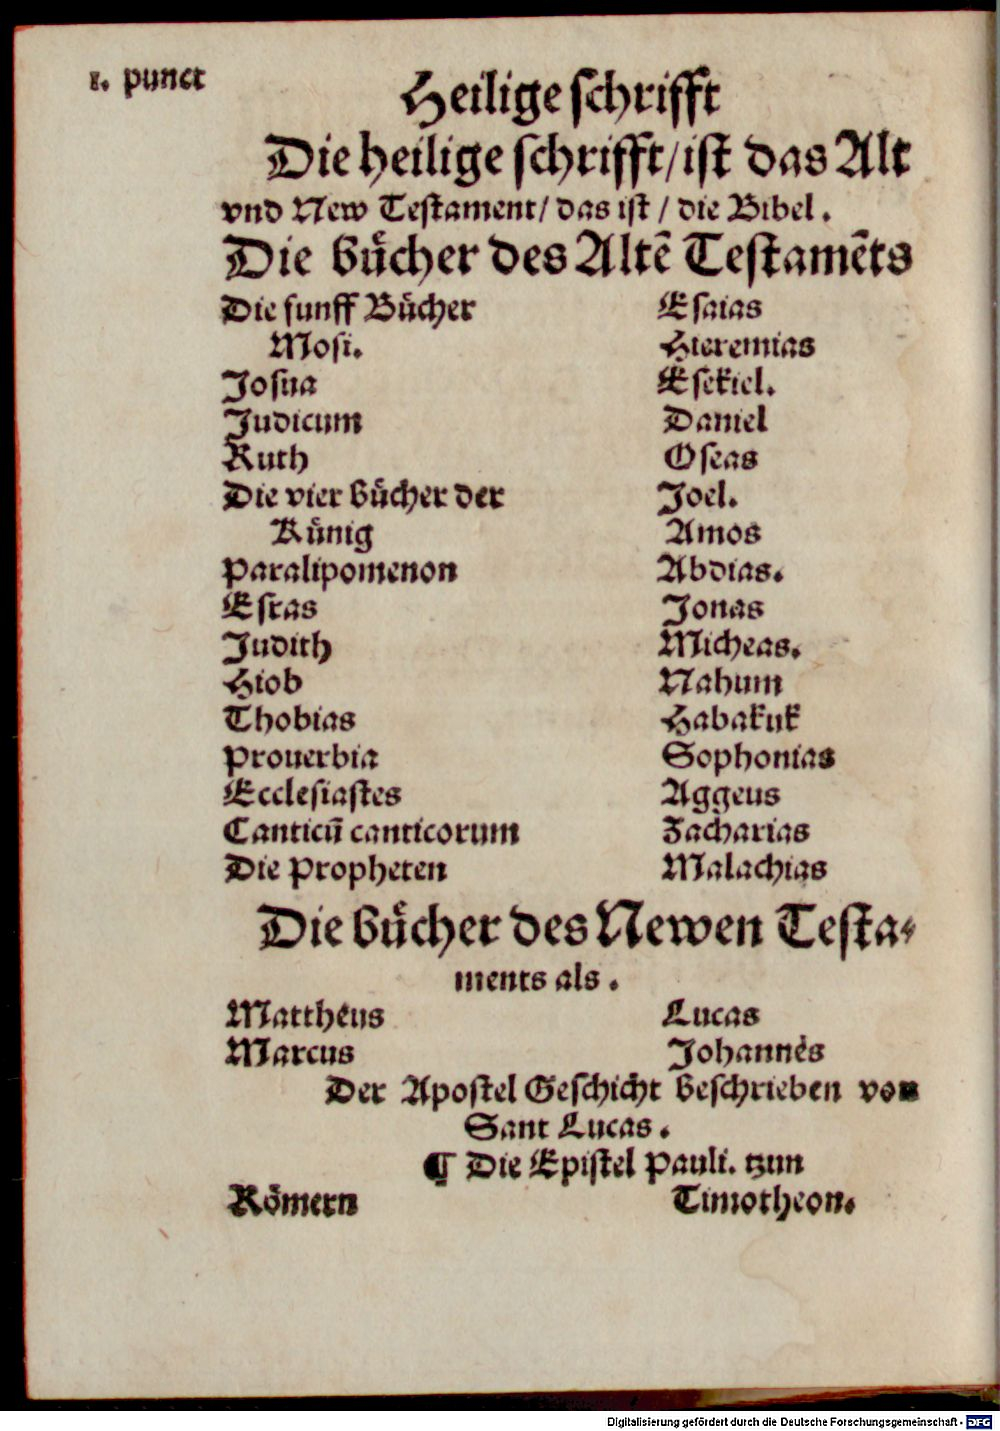 1. punct
Heilige schrifft
Die heilige schrifft/ist das Alt
vnd New Testament/ das ist / die Bibel.
Die bůcher des Altē Testamēts
Die funff Bůcher
Mosi.
Josua
Judicum
Ruth
Die vier bůcher der
Kůnig
Paralipomenon
Esras
Judith
Hiob
Thobias
Prouerbia
Ecclesiastes
Canticū canticorum
Die Propheten
Esaias
Hieremias
Esekiel.
Daniel
Oseas
Joel.
Amos
Abdias.
Jonas
Micheas.
Nahum
Habakuk
Sophonias
Aggeus
Zacharias
Malachias
Die bůcher des Newen Testa⸗
ments als.
Matthēus
Marcus
Lucas
Johannēs
Der Apostel Geschicht beschrieben von
Sant Lucas.
¶ Die Epistel Pauli. tzun
Römern
Timotheon.
Digitalisierung gefördert durch die Deutsche Forschungsgemeinschaft - DFG